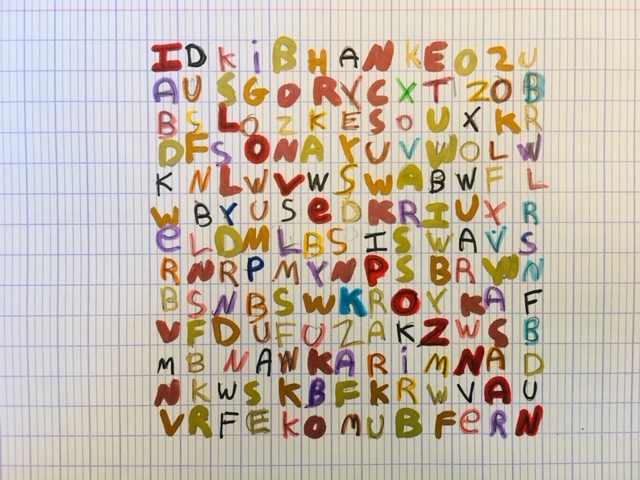 I D K i B H A N K E O 2 U
A U S G O R Y C X T 2 O B
B S L O Z K E S O U X K R
D F S O N A Y U V W O L W
K N L W V W S W A B W F L
W B Y U S e D K R I U X R
e L D M L B S I S W A V S
R N R P M Y N P S B R W N
B S N B S W K R O Y K A F
V F D U F U Z A K Z W S B
M B N A W K A R i M N A D
N K W S K B F K R W V A U
V R F E K O M U B F e R N